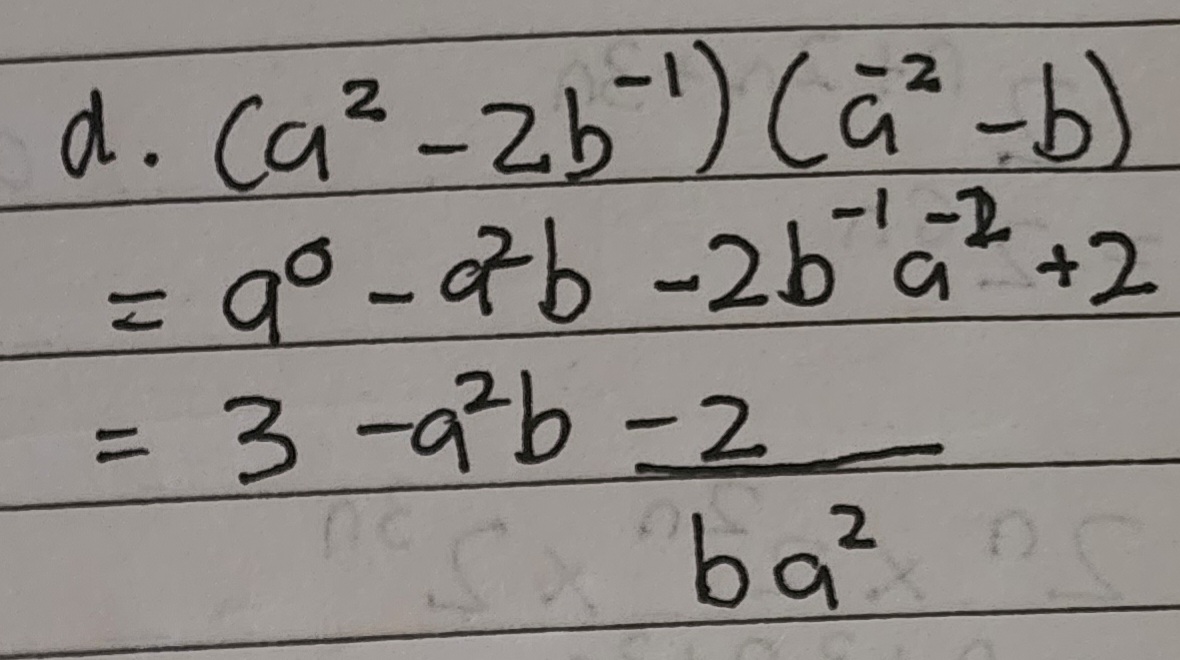 d. (a² - 2b⁻¹)(a⁻² - b)
= a⁰ - a²b - 2b⁻¹a⁻² + 2
= 3 - a²b - 2
ba²